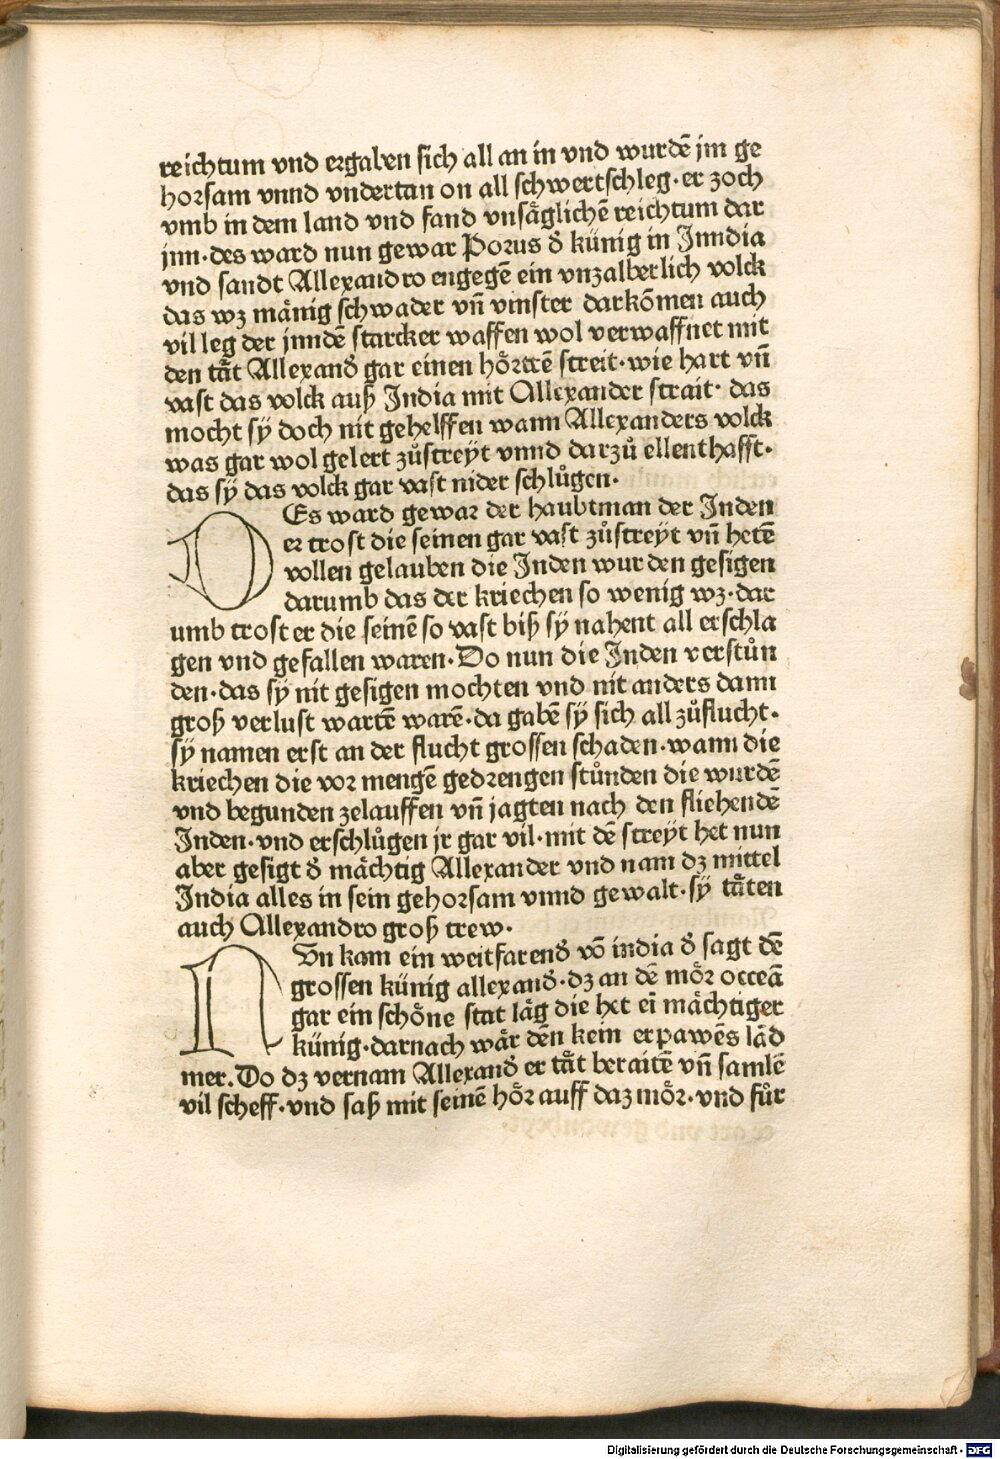 reichtum vnd ergaben sich all an in vnd wurdē jm ge
horsam vnnd vndertan on all schwertschleg·er zoch
vmb in dem land vnd fand vnsäglichē reichtum dar
jnn·des ward nun gewar Porus d̕ künig in Jnndia
vnd sandt Allexandro engegē ein vnzalberlich volck
das wz mänig schwader vn̄ vinster darkōmen auch
vil leg der jnndē starcker waffen wol verwaffnet mit
den taͤt Allexand̕ gar einen hoͤrttē streit·wie hart vn̄
vast das volck auß Jndia mit Allexander strait· das
mocht sÿ doch nit gehelffen wann Allexanders volck
was gar wol gelert zuͦstreÿt vnnd darzuͦ ellenthafft·
das sÿ das volck gar vast nider schluͦgen·
DEs ward gewar der haubtman der Jnden
er trost die seinen gar vast zuͦstreÿt vn̄ hetē
vollen gelauben die Jnden wurden gesigen
darumb das der kriechen so wenig wz·dar
umb trost er die seinē so vast biß sÿ nahent all erschla
gen vnd gefallen waren·Do nun die Jnden verstuͦn
den·das sÿ nit gesigen mochten vnd nit anders dann
groß verlust wartē warē·da gabē sÿ sich all zuͦflucht·
sÿ namen erst an der flucht grossen schaden·wann die
kriechen die vor mengē gedrengen stuͦnden die wurdē
vnd begunden zelauffen vn̄ jagten nach den fliehendē
Jnden·vnd erschluͦgen jr gar vil·mit dē streÿt het nun
aber gesigt d̕ maͤchtig Allexander vnd nam dz mittel
Jndia alles in sein gehorsam vnnd gewalt·sÿ taͤten
auch Allexandro groß trew·
NUn kam ein weitfarend̕ vō india d̕ sagt dē
grossen künig allexand̕·dz an dē moͤr occeā
gar ein schoͤne stat laͤg die het eī maͤchtiger
künig·darnach waͤr dēn kein erpawēs lād
mer.Do dz vernam Allexand̕ er taͤt beraitē vn̄ samlē
vil scheff·vnd saß mit seinē hoͤr auff daz moͤr·vnd fuͦr
Digitalisierung gefördert durch die Deutsche Forschungsgemeinschaft · DFG